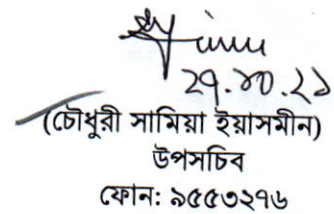 ২৭.১০.২১
(চৌধুরী সামিয়া ইয়াসমীন)
উপসচিব
ফোন: ৯৫৫৩২৭৬